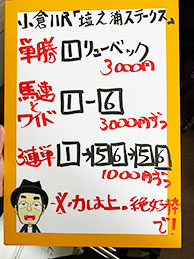 小倉11R「壇之浦ステークス」
単勝 1 リューベック
3000円
馬連とワイド 1-6
3000円ずつ
3連単 1→5 6→5 6
1000円ずつ
絶好枠
で!